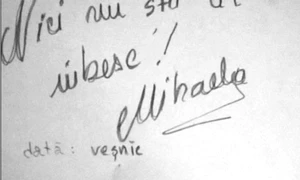 Nici nu
iubesc!
Mihaela
dată: veșnic